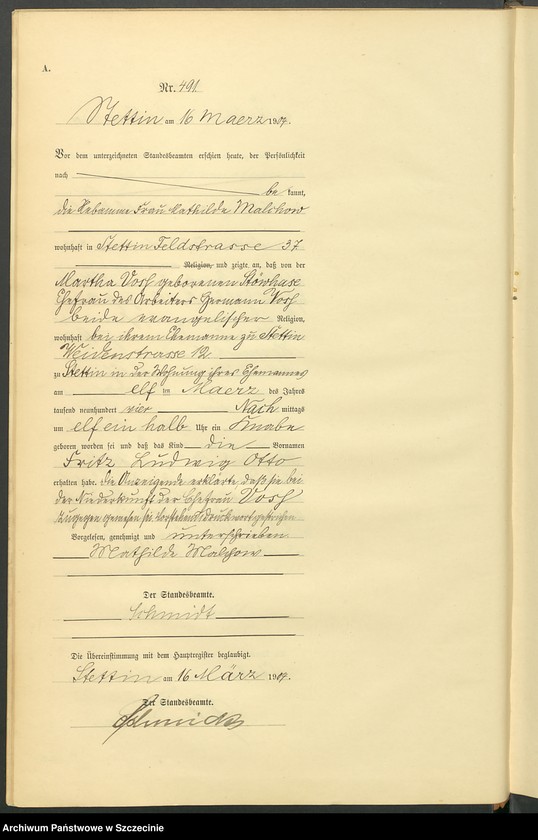 A.
Nr. 491
Stettin am 16 Maerz 1904.
Vor dem unterzeichneten Standesbeamten erschien heute, der Persönlichkeit
nach
be kannt,
die Hebamme Frau Mathilde Malchow
wohnhaft in Stettin Feldstrasse 37
Religion, und zeigte an, daß von der
Martha Vosz geborenen Stöwhase
Ehefrau des Arbeiters Hermann Vosz
beide evangelischer Religion,
wohnhaft bei ihrem Ehemanne zu Stettin
Weidenstrasse 12
zu Stettin in der Wohnung ihres Ehemannes
am elf ten Maerz des Jahres
tausend neunhundert vier Nach mittags
um elf ein halb Uhr ein Knabe
geboren worden sei und daß das Kind die Vornamen
Fritz Ludwig Otto
erhalten habe. Die Anzeigende erklärte daß sie bei
der Niederkunft der Ehefrau Vosz
zugegen gewesen sei. Vorstehend 1 Druckwort gestrichen
Vorgelesen, genehmigt und unterschrieben
Mathilde Malchow
Der Standesbeamte.
Schmidt
Die Übereinstimmung mit dem Hauptregister beglaubigt.
Stettin am 16 März 1904.
Der Standesbeamte.
Schmidt
Archiwum Państwowe w Szczecinie